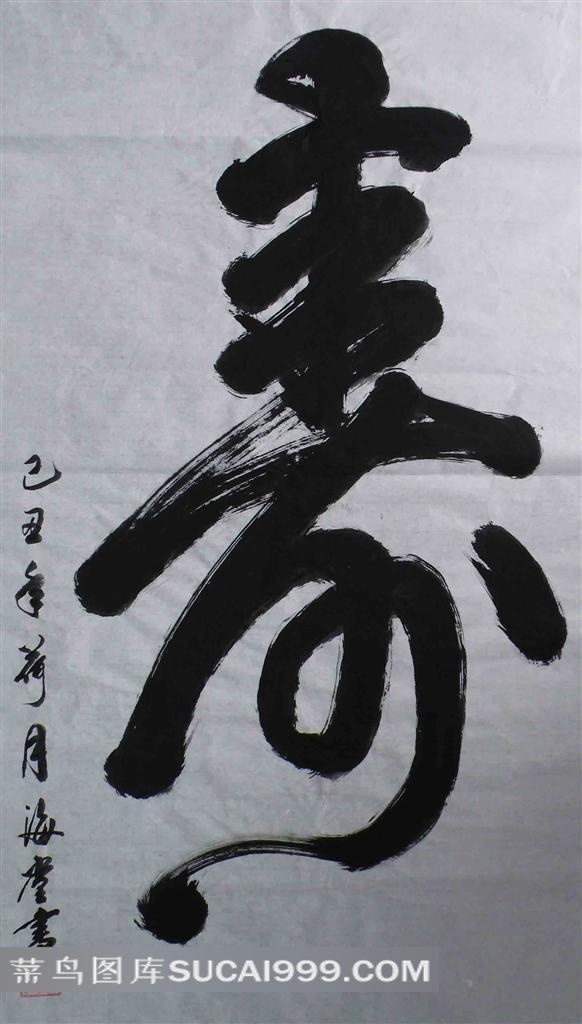 寿
己丑年荷月海堂书
菜鸟图库SUCAI999.COM